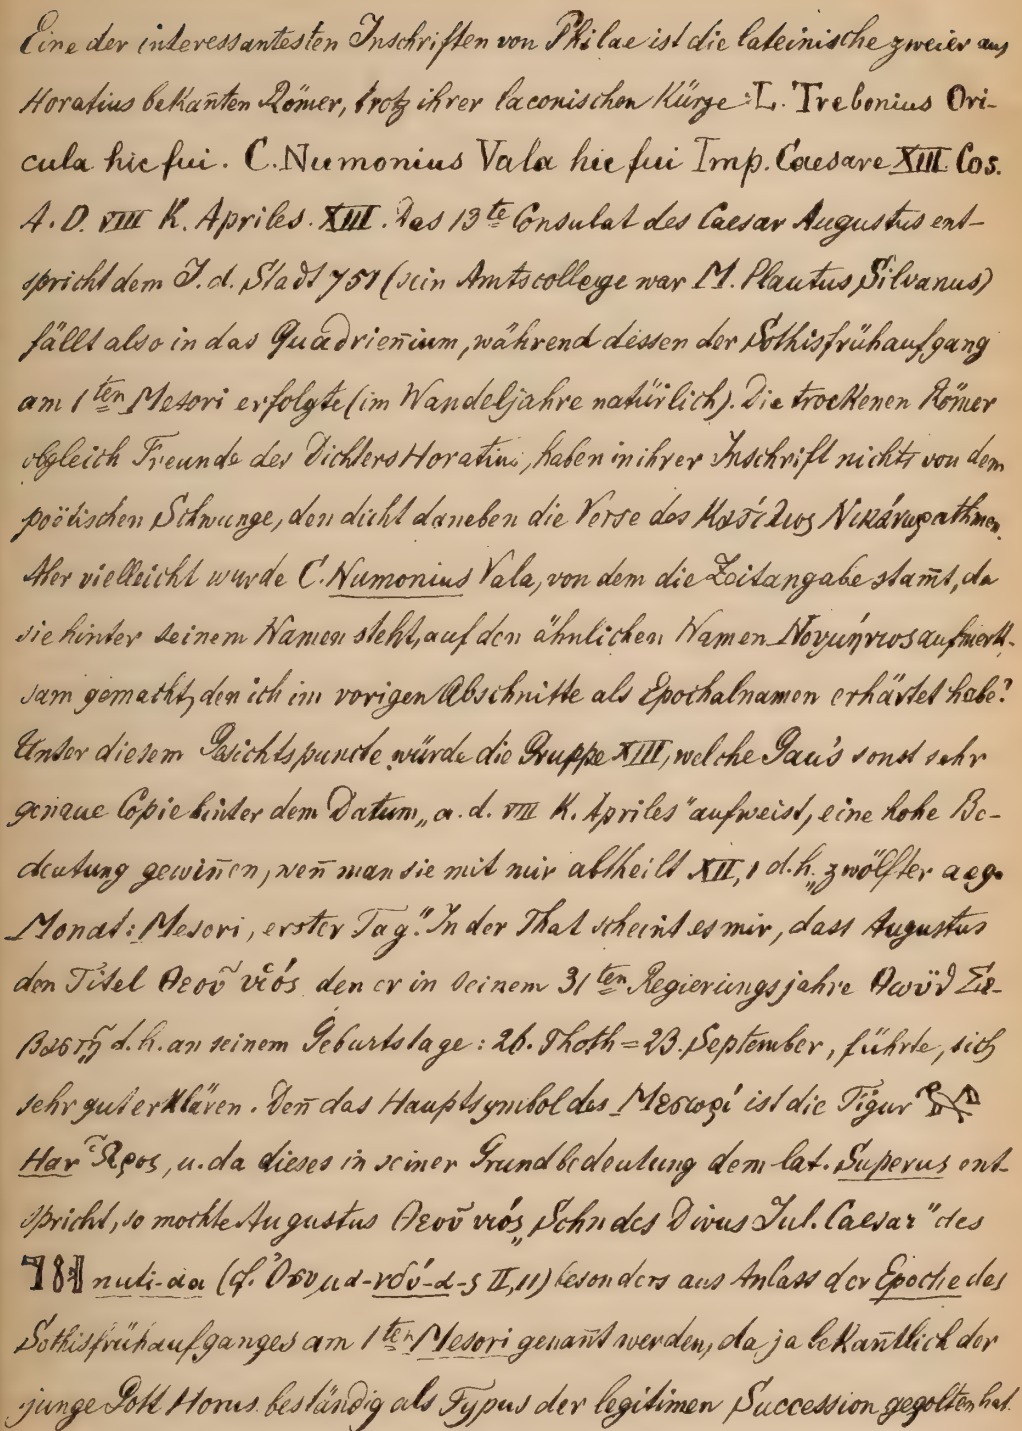 Eine der interessantesten Inschriften von Philae ist die lateinische zweier aus
Horatius bekan̄ten Römer, trotz ihrer laconischen Kürze: L. Trebonius Ori-
cula hic fui. C. Numonius Vala hic fui Imp. Caesare XIII Cos.
A. D. VIII K. Apriles. XIII. Das 13te Consulat des Caesar Augustus ent-
spricht dem J. d. Stadt 751 (sein Amtscollege war M. Plautus Silvanus)
fällt also in das Quadrien̄ium, während dessen der Sothisfrühaufgang
am 1ten Mesori erfolgte (im Wandeljahre natürlich). Die trockenen Römer
obgleich Freunde des Dichters Horatius, haben in ihrer Inschrift nichts von dem
poëtischen Schwunge, den dicht daneben die Verse des athmen.
Aber vielleicht wurde C. Numonius Vala, von dem die Zeitangabe stam̄t, da
sie hinter seinem Namen steht, auf den ähnlichen Namen aufmerk-
sam gemacht, den ich im vorigen Abschnitte als Epochalnamen erhärtet habe?
Unter diesem Gesichtspuncte würde die Gruppe XIII, welche Gau's sonst sehr
genaue Copie hinter dem Datum „a. d. VIII K. Apriles" aufweist, eine hohe Be-
deutung gewin̄en, wen̄ man sie mit mir abtheilt XII, 1 d. h. „zwölfter aeg.
Monat: Mesori, erster Tag". In der That scheint es mir, dass Augustus
den Titel Θεοῦ υἱός den er in seinem 31ten Regierungsjahre
d. h. an seinem Geburtstage: 26. Thoth = 23. September, führte, sich
sehr gut erklären. Den̄ das Hauptsymbol des Μεσωρί ist die Figur
Har Ὧρος, u. da dieses in seiner Grundbedeutung dem lat. Superus ent-
spricht, so mochte Augustus Θεοῦ υἱός „Sohn des Divus Jul. Caesar" des
nuti-aa (cf. II, 11) besonders aus Anlass der Epoche des
Sothisfrühaufganges am 1ten Mesori genan̄t werden, da ja bekan̄tlich der
junge Gott Horus beständig als Typus der legitimen Succession gegolten hat.